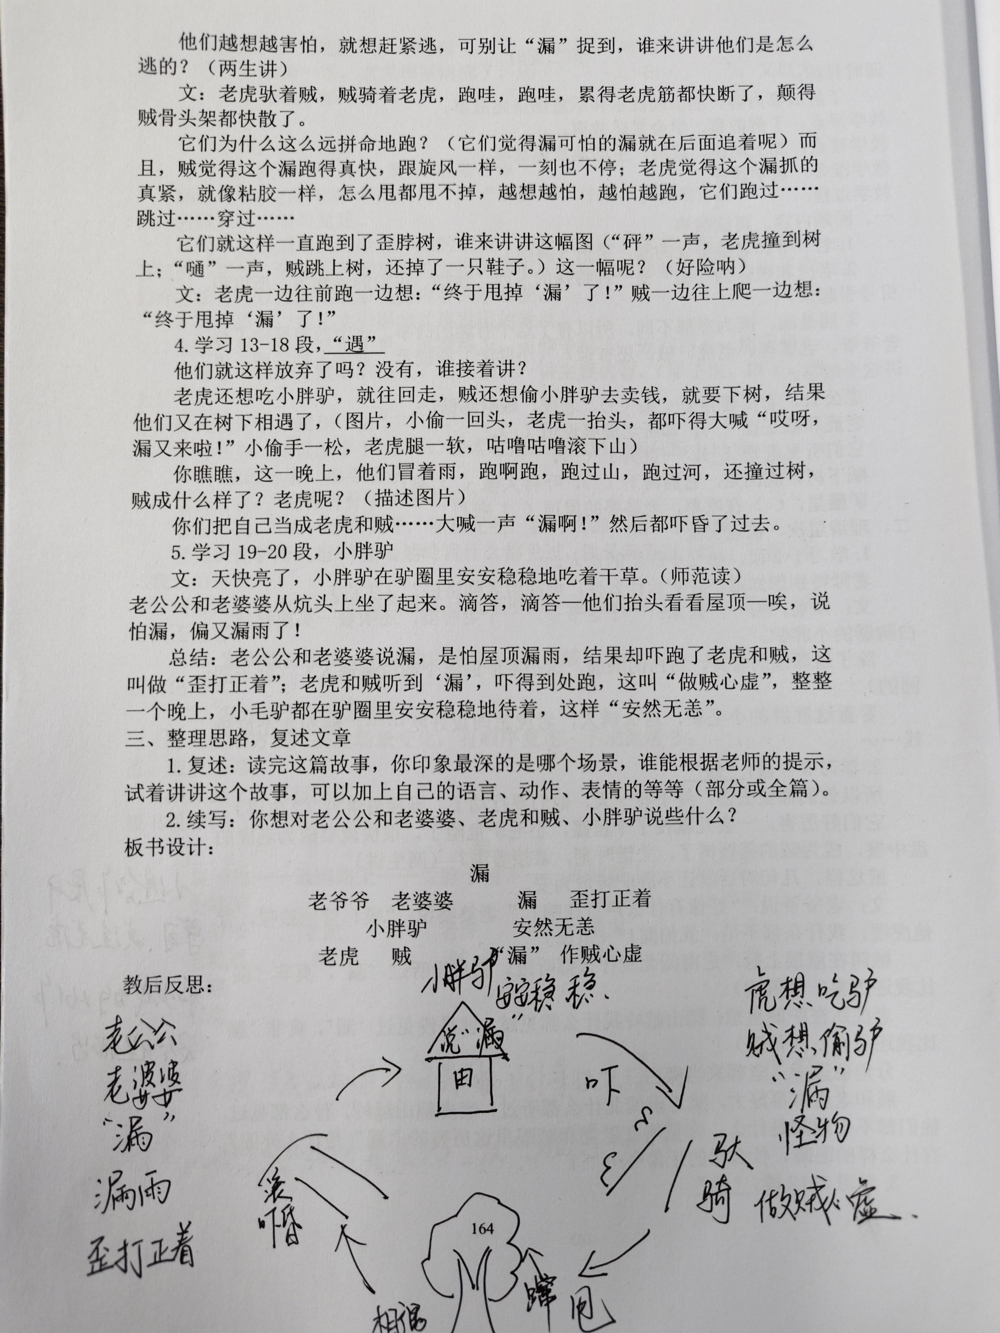 他们越想越害怕，就想赶紧逃，可别让“漏”捉到，谁来讲讲他们是怎么
逃的？（两生讲）
文：老虎驮着贼，贼骑着老虎，跑哇，跑哇，累得老虎筋都快断了，颠得
贼骨头架都快散了。
它们为什么这么远拼命地跑？（它们觉得漏可怕的漏就在后面追着呢）而
且，贼觉得这个漏跑得真快，跟旋风一样，一刻也不停；老虎觉得这个漏抓的
真紧，就像粘胶一样，怎么甩都甩不掉，越想越怕，越怕越跑，它们跑过……
跳过……穿过……
它们就这样一直跑到了歪脖树，谁来讲讲这幅图（“砰”一声，老虎撞到树
上；“嗵”一声，贼跳上树，还掉了一只鞋子。）这一幅呢？（好险呐）
文：老虎一边往前跑一边想：“终于甩掉‘漏’了！”贼一边往上爬一边想：
“终于甩掉‘漏’了！”
4.学习13-18段，“遇”
他们就这样放弃了吗？没有，谁接着讲？
老虎还想吃小胖驴，就往回走，贼还想偷小胖驴去卖钱，就要下树，结果
他们又在树下相遇了，（图片，小偷一回头，老虎一抬头，都吓得大喊“哎呀，
漏又来啦！”小偷手一松，老虎腿一软，咕噜咕噜滚下山）
你瞧瞧，这一晚上，他们冒着雨，跑啊跑，跑过山，跑过河，还撞过树，
贼成什么样了？老虎呢？（描述图片）
你们把自己当成老虎和贼……大喊一声“漏啊！”然后都吓昏了过去。
5.学习19-20段，小胖驴
文：天快亮了，小胖驴在驴圈里安安稳稳地吃着干草。（师范读）
老公公和老婆婆从炕头上坐了起来。滴答，滴答—他们抬头看看屋顶—唉，说
怕漏，偏又漏雨了！
总结：老公公和老婆婆说漏，是怕屋顶漏雨，结果却吓跑了老虎和贼，这
叫做“歪打正着”；老虎和贼听到‘漏’，吓得到处跑，这叫“做贼心虚”，整整
一个晚上，小毛驴都在驴圈里安安稳稳地待着，这样“安然无恙”。
三、整理思路，复述文章
1.复述：读完这篇故事，你印象最深的是哪个场景，谁能根据老师的提示，
试着讲讲这个故事，可以加上自己的语言、动作、表情的等等（部分或全篇）。
2.续写：你想对老公公和老婆婆、老虎和贼、小胖驴说些什么？
板书设计：
漏
老爷爷 老婆婆 漏 歪打正着
小胖驴 安然无恙
老虎 贼 “漏” 作贼心虚
教后反思：
小胖驴 安安稳稳.
说“漏”
老公公
老婆婆
“漏”
漏雨
歪打正着
虎想吃驴
贼想偷驴
“漏”
怪物
做贼心虚.
吓
驮
骑
滚
吓昏
164
蹿 甩
相遇